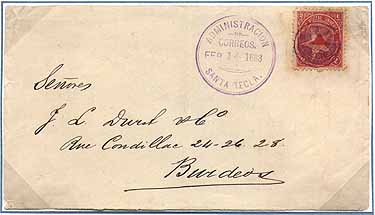 ADMINISTRACION
DE
CORREOS.
FEB 14 1883
SANTA TECLA.
Señores
J L Durat & Cº
Rue Condillac 24-26-28
Burdeos